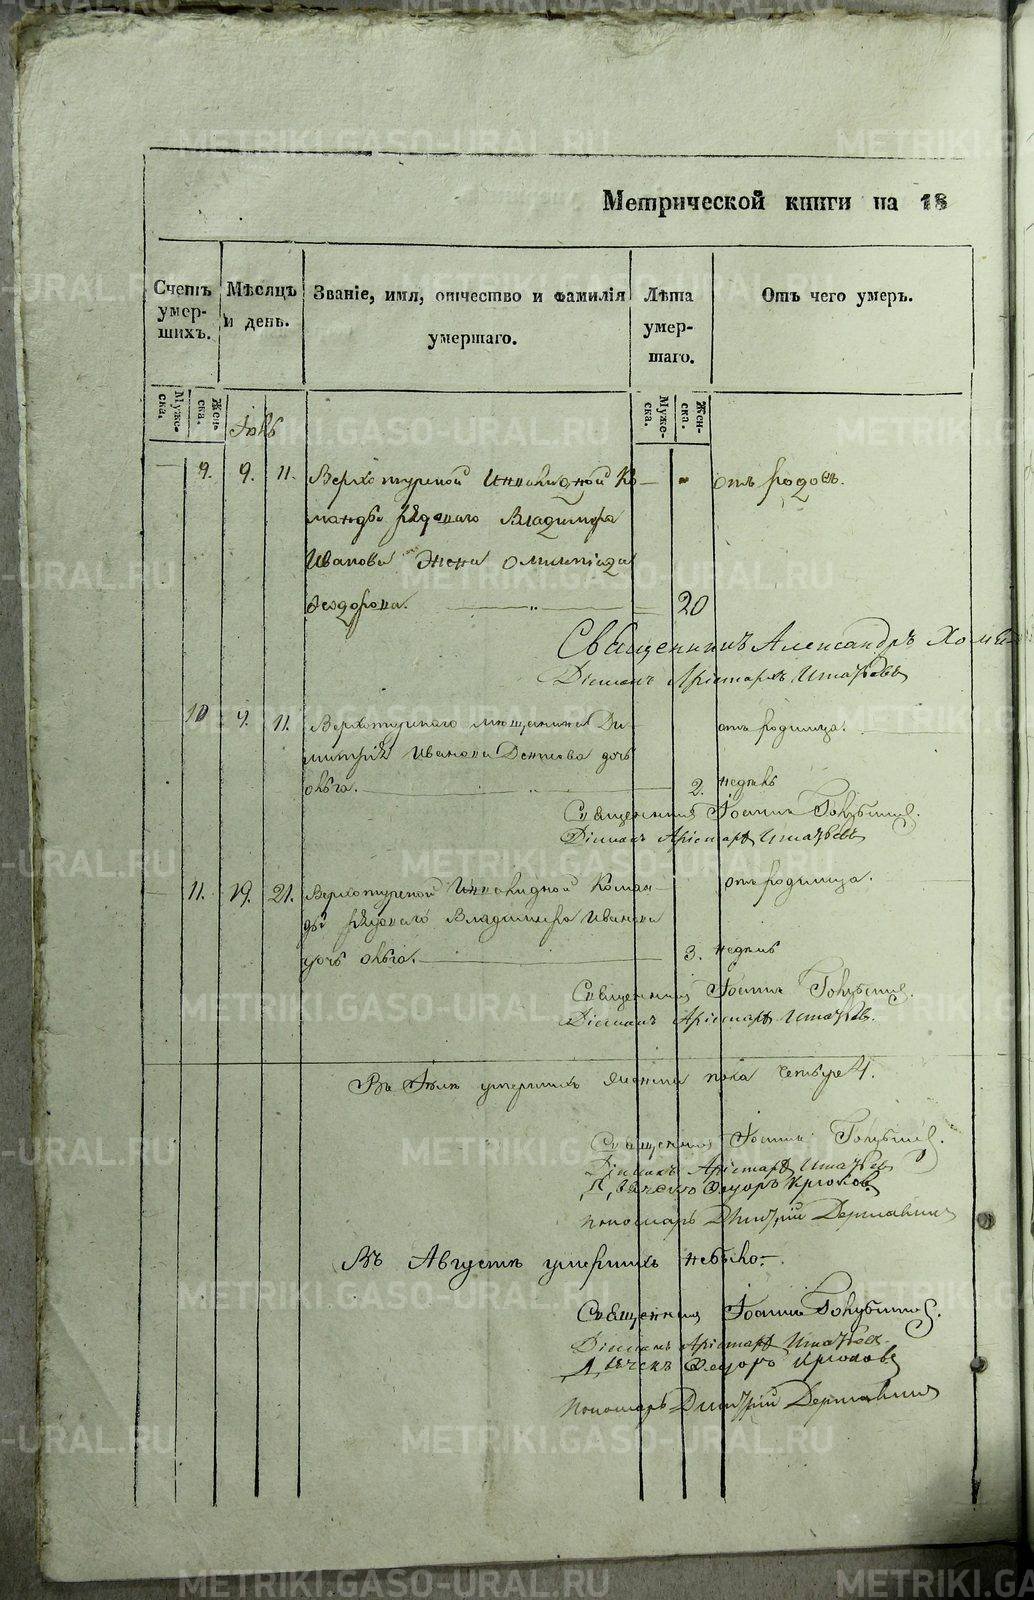 Метрической книги на 18
Счетъ умер-шихъ.
Мѣсяцъ и день.
Званіе, имя, отчество и фамилія умершаго.
Лѣта умер-шаго.
Отъ чего умеръ.
Муже-ска.
Жен-ска.
Муже-ска.
Жен-ска.
Іюль
9. 9. 11. Верхотурской Инвалидной Ко- от родовъ.
манды рядоваго Владимира
Иванова жена Олимпіада
Феодорова. 20
Священникъ Александръ
Діаконъ Арістархъ
10 9. 11. Верхотурскаго мещанина Ди- отъ родимца.
митрія Иванова дочь
Ольга. 2. недѣль
Священникъ Іоаннъ Голубцовъ.
Діаконъ Арістархъ
11. 19. 21. Верхотурской Инвалидной Коман- отъ родимца.
ды рядоваго Владимира Иванова
дочь Ольга. 3. недѣль
Священникъ Іоаннъ Голубцовъ.
Діаконъ Арістархъ
Въ Іюлѣ умершихъ женска пола четыре 4.
Священникъ Іоаннъ Голубцовъ.
Діаконъ Арістархъ
Дьячекъ Ѳедоръ Крюковъ
Пономарь Димитрій Державинъ
Въ Августѣ умершихъ небыло.
Священникъ Іоаннъ Голубцовъ.
Діаконъ Арістархъ
Дьячекъ Ѳедоръ Крюковъ
Пономарь Димитрій Державинъ
METRIKI.GASO-URAL.RU